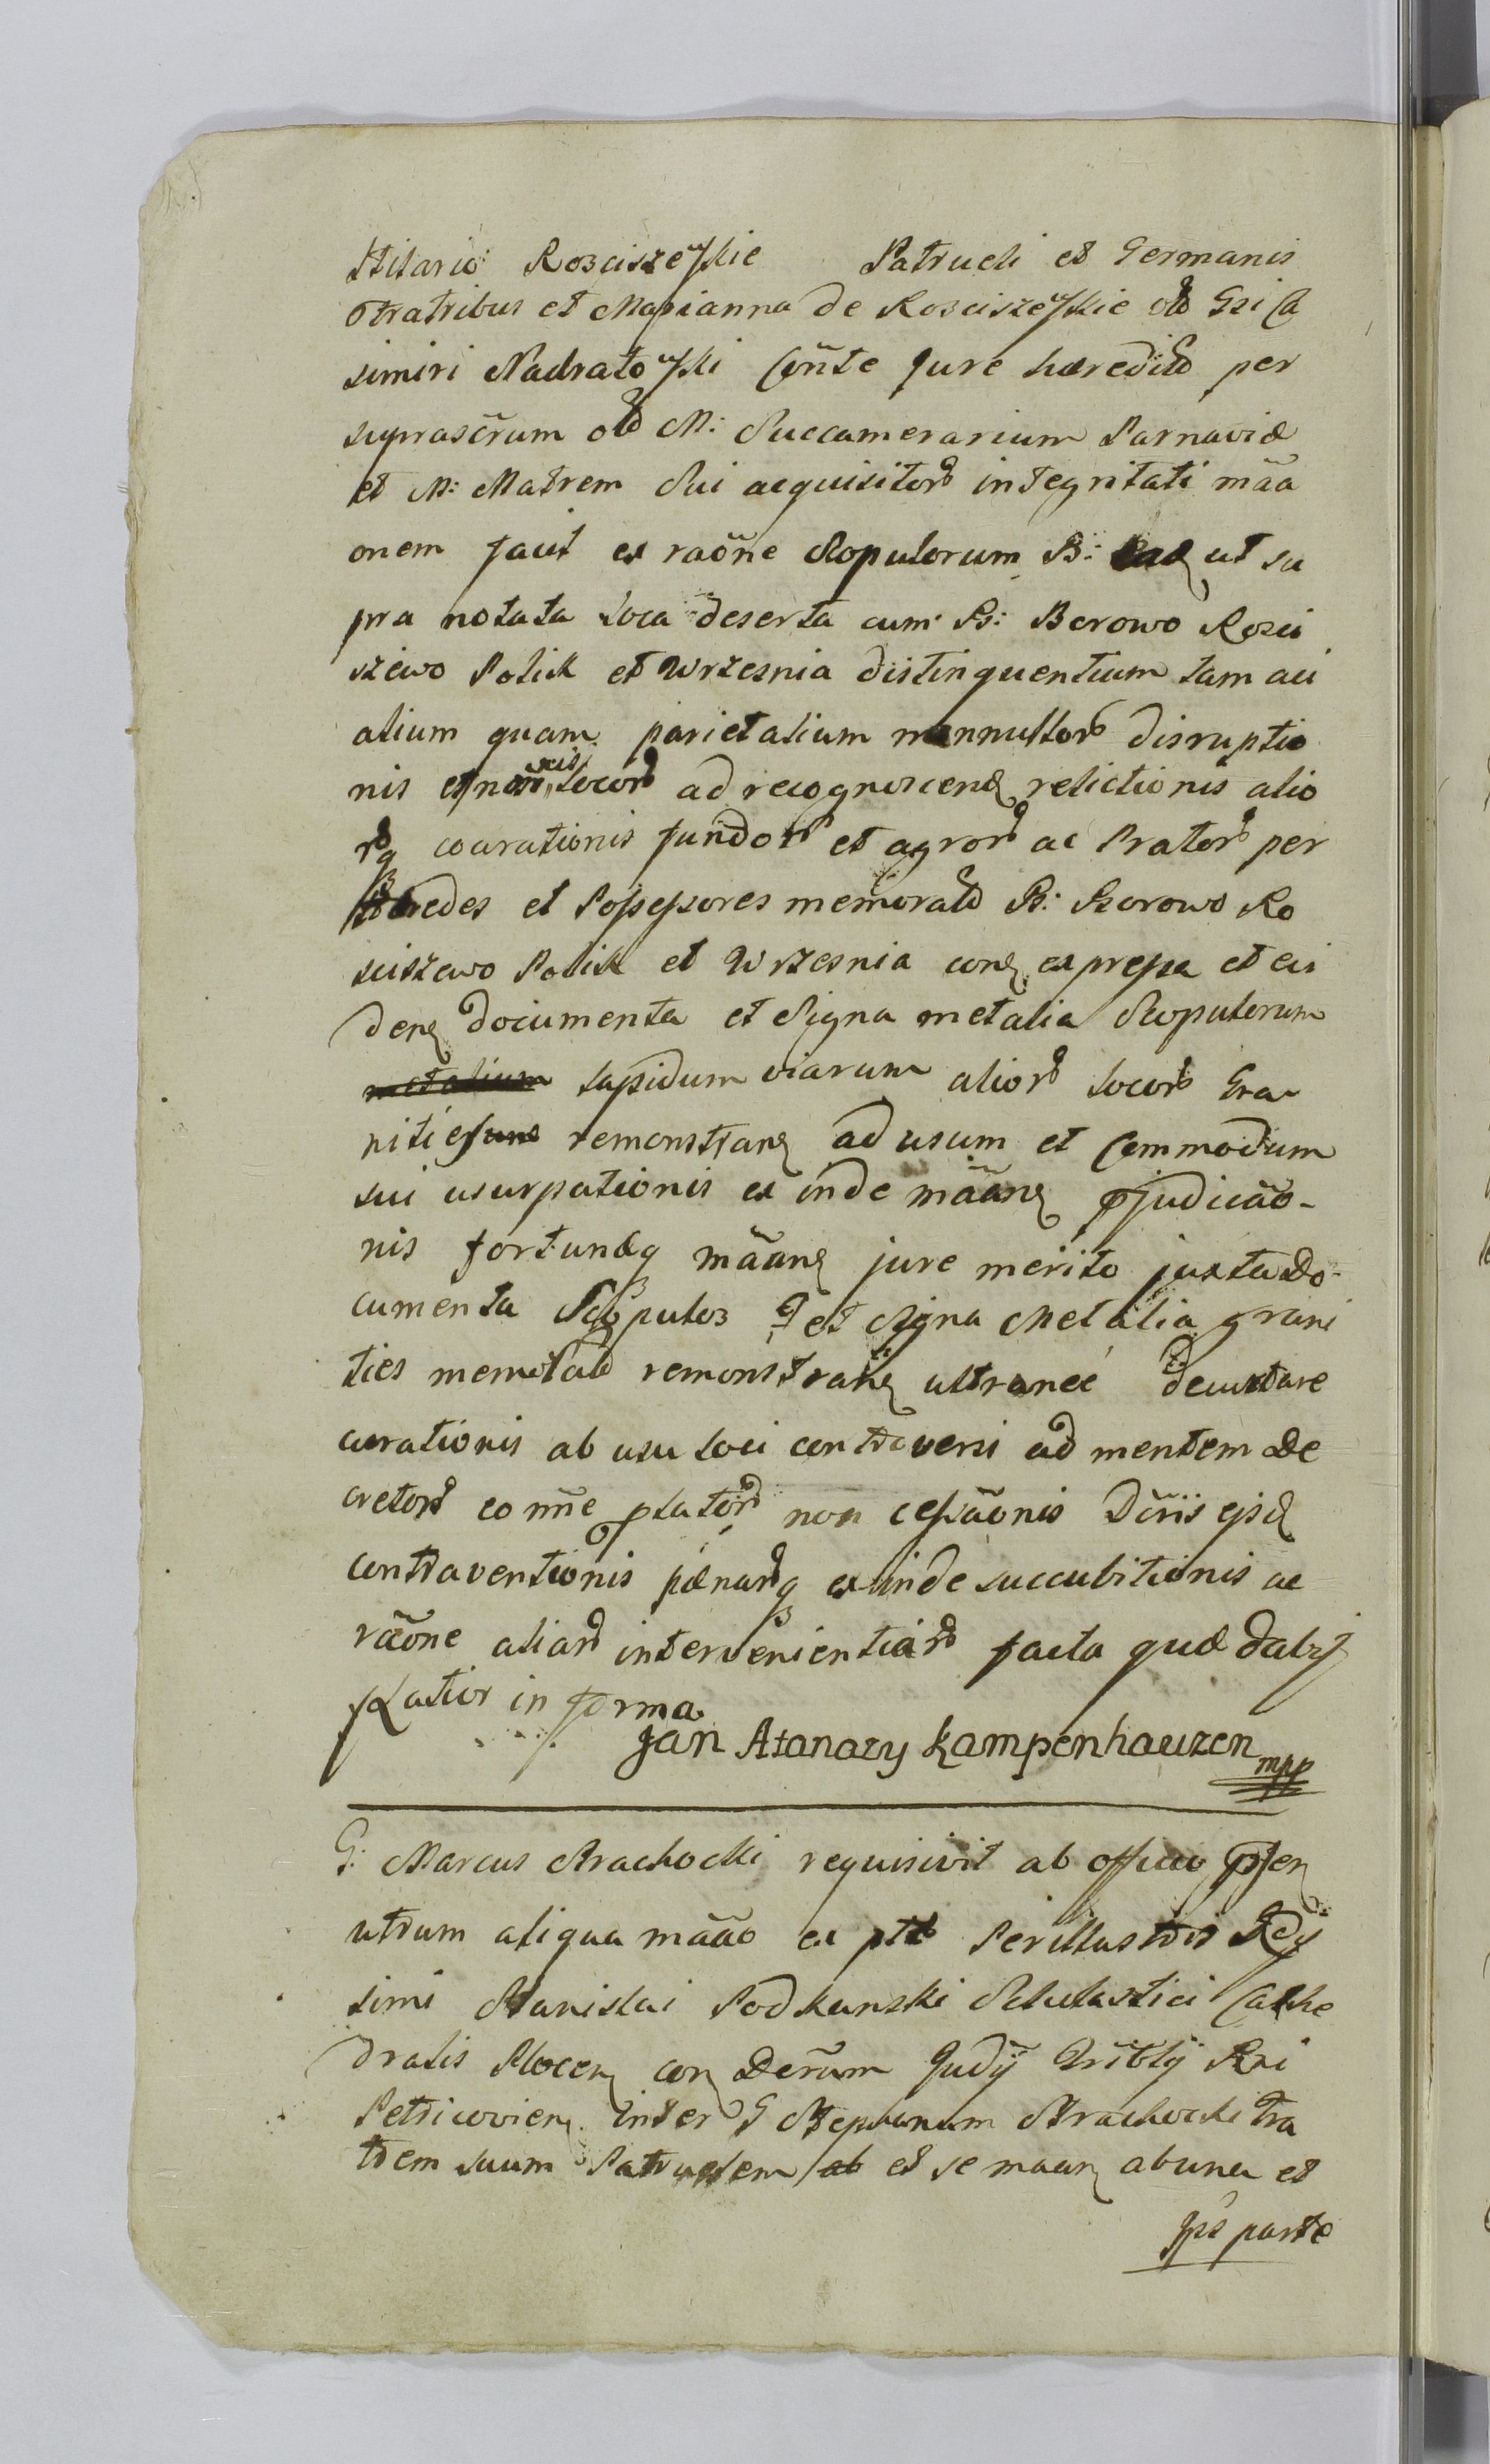 Hilario Rosciszewskie Patrueli et Germanis
Fratribus et Marianna de Rosciszewskie olb Gsi Ca
simiri Nadratowski Coñte Jure hæredib per
suprascr̃um olb M: Succamerarium Parnaviæ
et M: Matrem Sui acquisitorb integritati mãa
onem facit ex raõne Scopulorum B: ut su
pra notata loca deserta cum B: Borowo Rosci
szewo Polik et Wrzesnia distinguentium tam aci
alium quam parietalium nonnullorb disruptio
nis et locorb ad recognoscenḍ relictionis alio
rbq coarationis fundorb et agrorb ac Pratorb per
Hæredes et Possessores memoratb B: Borowo Ro
sciszewo Polik et Wrzesnia conḍ expressa et evi
denḍ documenta et Signa metalia Scopulorum
metalium lapidum viarum aliorb locorb Gra
nities remonstranḍ ad usum et Commodum
sui usurpationis ex inde mãanḍ pjudicão-
nis fortunæq mãanḍ jure merito juxta Do-
cumenta Scopulos et et Signa Metalia grani
ties memoratb remonstranḍ ultranee
aurationis ab usu loci controversi ad mentem De
cretorb eo nñe platõrb non cessãonis Dc̃riis ejsd
contraventionis pænarbq exinde succubitionis ac
rãone aliarb intervenientiarb facta quæ dabr
Latior in forma
Jan Atanazy Kampenhauzen mpp
G: Marcus Strachocki requisivit ab officio pñsen
utrum aliqua mãao ex ptte Perillustris Rd̃i
simi Stanislai Podkanski Scholastici Cathe
dralis Plocen con Decr̃um Judĩj Tribl̃ij Rni
Petricovien. inter G Stephanum Strachocki Fra
trem suum Patruelem ab et se maan ab una et
Ips parte